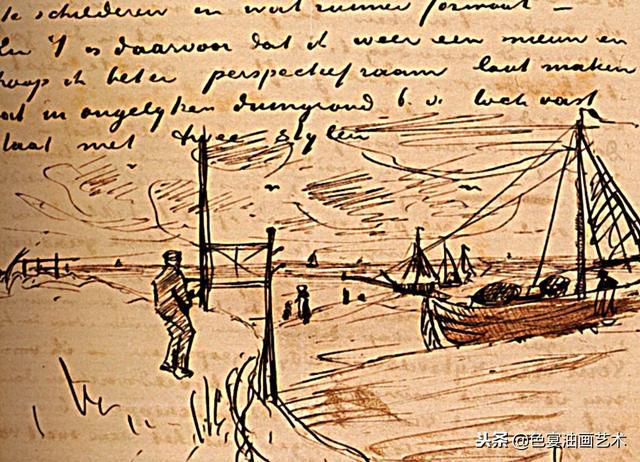 te schilderen en wat ruimer formaat –
En 't is daarvoor dat ik weer een nieuw en
hoop ik beter perspectiefraam laat maken
dat in ongelyken duingrond b.v. toch vast
staat met twee stylen
头条 @色宴油画艺术